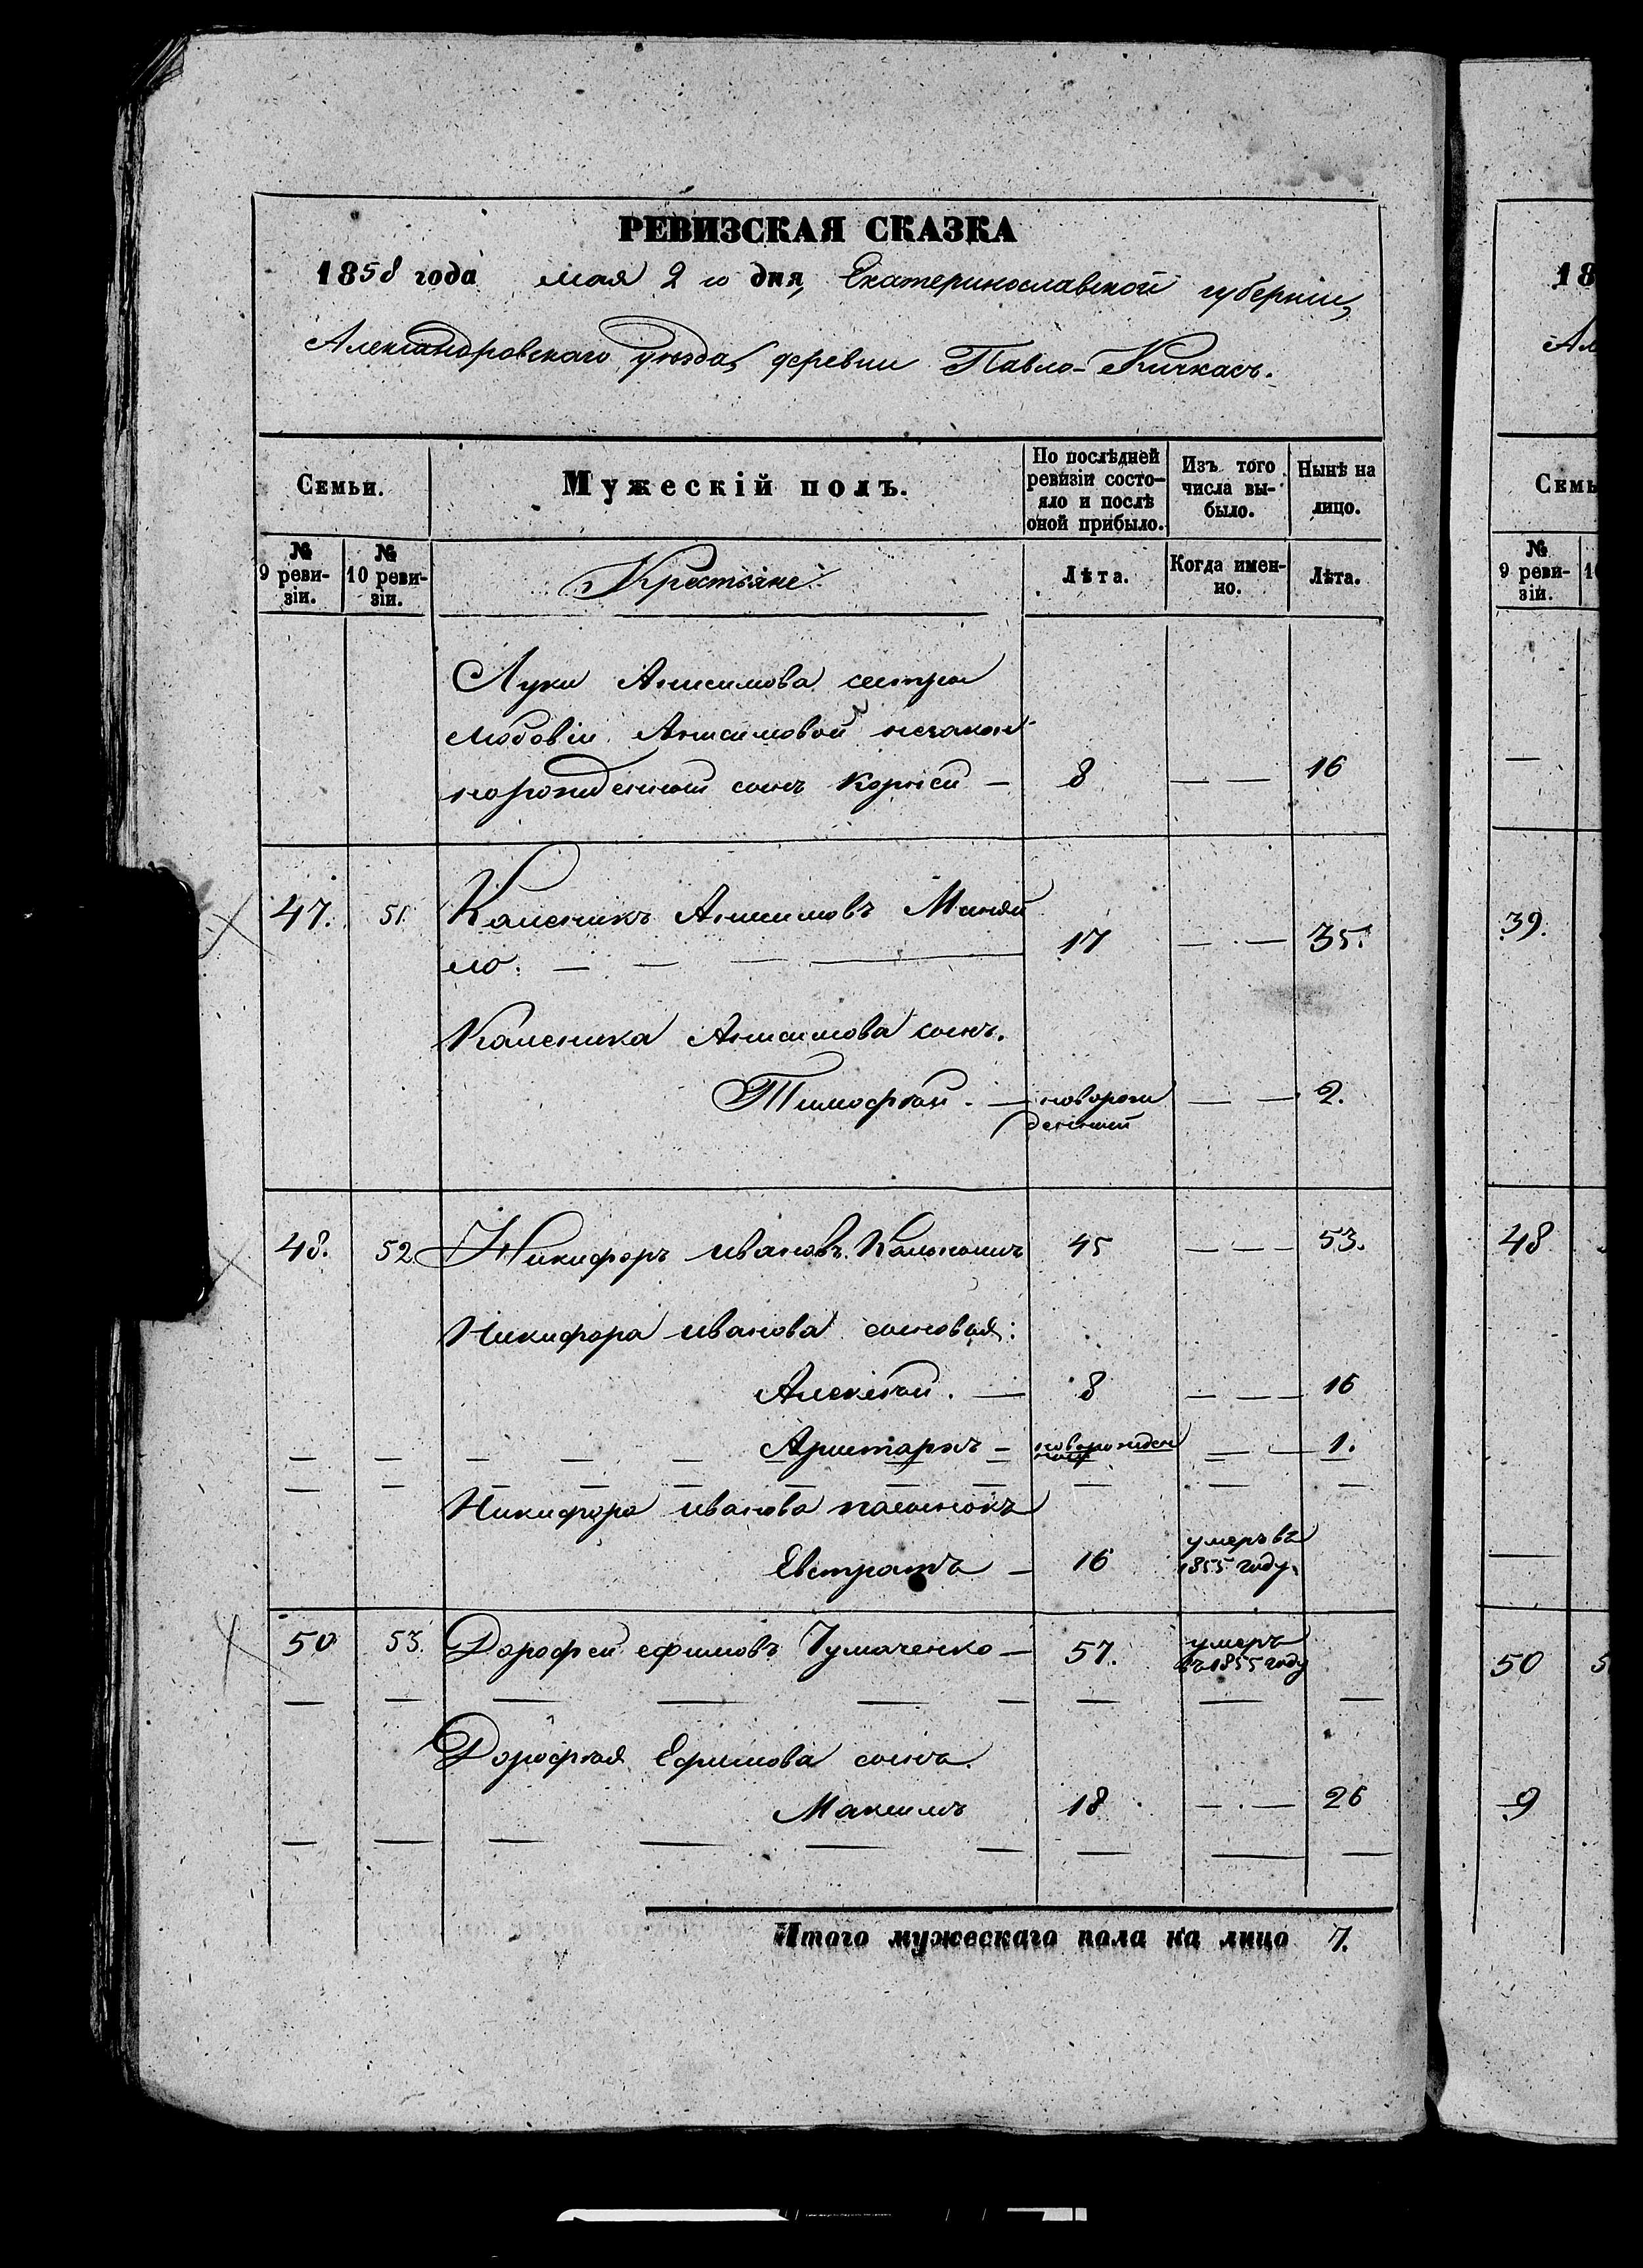 РЕВИЗСКАЯ СКАЗКА
1858 года мая 2 го дня, Екатеринославской губерніи,
Александровскаго уѣзда, деревни Павло-Кичкасъ.
Семьи.
Мужескій полъ.
По послѣдней ревизіи состояло и послѣ оной прибыло.
Изъ того числа выбыло.
Нынѣ на лицо.
№ 9 ревизіи.
№ 10 ревизіи.
Крестьяне:
Лѣта.
Когда именно.
Лѣта.
Луки Анисимова сестры
Любовіи Анисимовой незакон
норожденный сынъ Корнѣй — 8 — — 16
47. 51. Каленикъ Анисимовъ
ло. — — — 17 — . — 35.
Каленика Анисимова сынъ.
Тимофѣй. — новорож
денный — — 2.
48. 52. Никифоръ Ивановъ 45 — — — 53.
Никифора Иванова сыновья:
Алексѣй. — 8 — — — 16
Аристархъ — новорожден
ный — — 1.
Никифора Иванова пасынокъ
Евстратъ — 16 умеръ въ
1855 году.
50 53. Дорофей Ефимовъ Чумаченко — 57. умеръ
въ 1855 году
Дорофѣя Ефимова сынъ.
Максимъ 18 — . — 26
Итого мужескаго пола на лицо 7.
18
Ал
Семь
№ 9 ревизіи.
39.
48
50
9